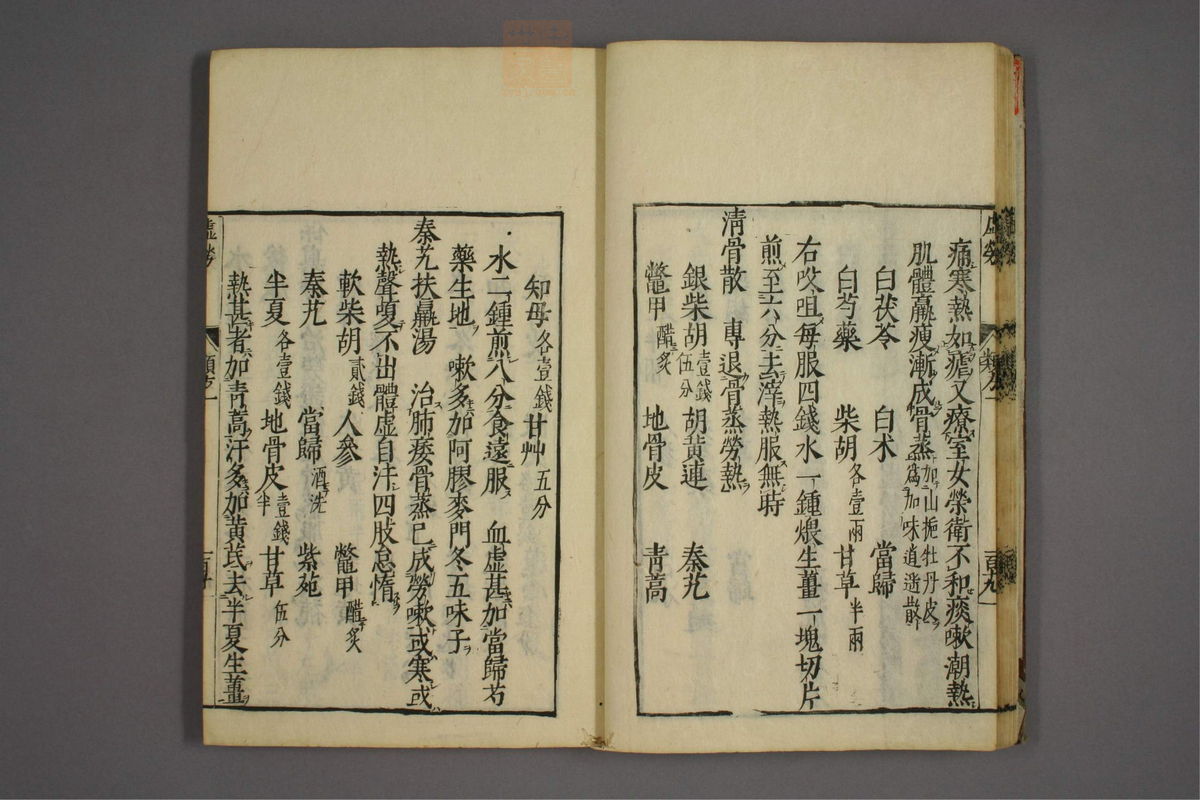 痛寒熱如瘧又療室女榮衛不和痰嗽潮熱
肌體羸瘦漸成骨蒸加山梔牡丹皮爲加味逍遥散
白茯苓 白术 當歸
白芍藥 柴胡各壹兩 甘草半兩
右㕮咀每服四錢水一鍾煨生薑一塊切片
煎至六分去滓熱服無時
淸骨散 專退骨蒸勞熱
銀柴胡壹錢伍分 胡黄連 秦艽
鼈甲醋炙 地骨皮 靑蒿
知母各壹錢 甘艸五分
水二鍾煎八分食遠服 血虚甚加當歸芍
藥生地 嗽多加阿膠麥門冬五味子
秦艽扶羸湯 治肺痿骨蒸已成勞嗽或寒或
熱聲嗄不出體虚自汗四肢怠惰
軟柴胡貳錢 人參 鼈甲醋炙
秦艽 當歸酒洗 紫菀
半夏各壹錢 地骨皮壹錢半 甘草伍分
熱甚者加靑蒿汗多加黄芪去半夏生薑
虚勞